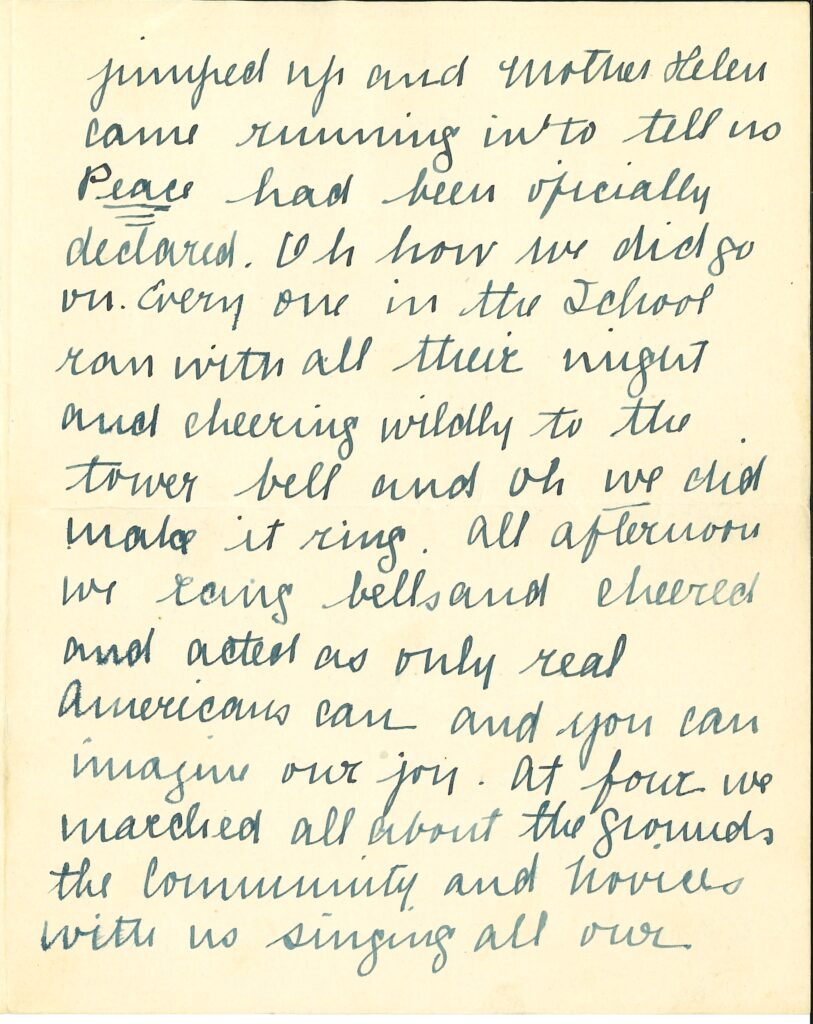 jumped up and Mother Helen
came running in to tell us
Peace had been oficially
declared. Oh how we did go
on. Every one in the School
ran with all their might
and cheering wildly to the
tower bell and oh we did
make it ring. All afternoon
we rang bells and cheered
and acted as only real
Americans can and you can
imagine our joy. At four we
marched all about the grounds
the Community and Novices
with us singing all our